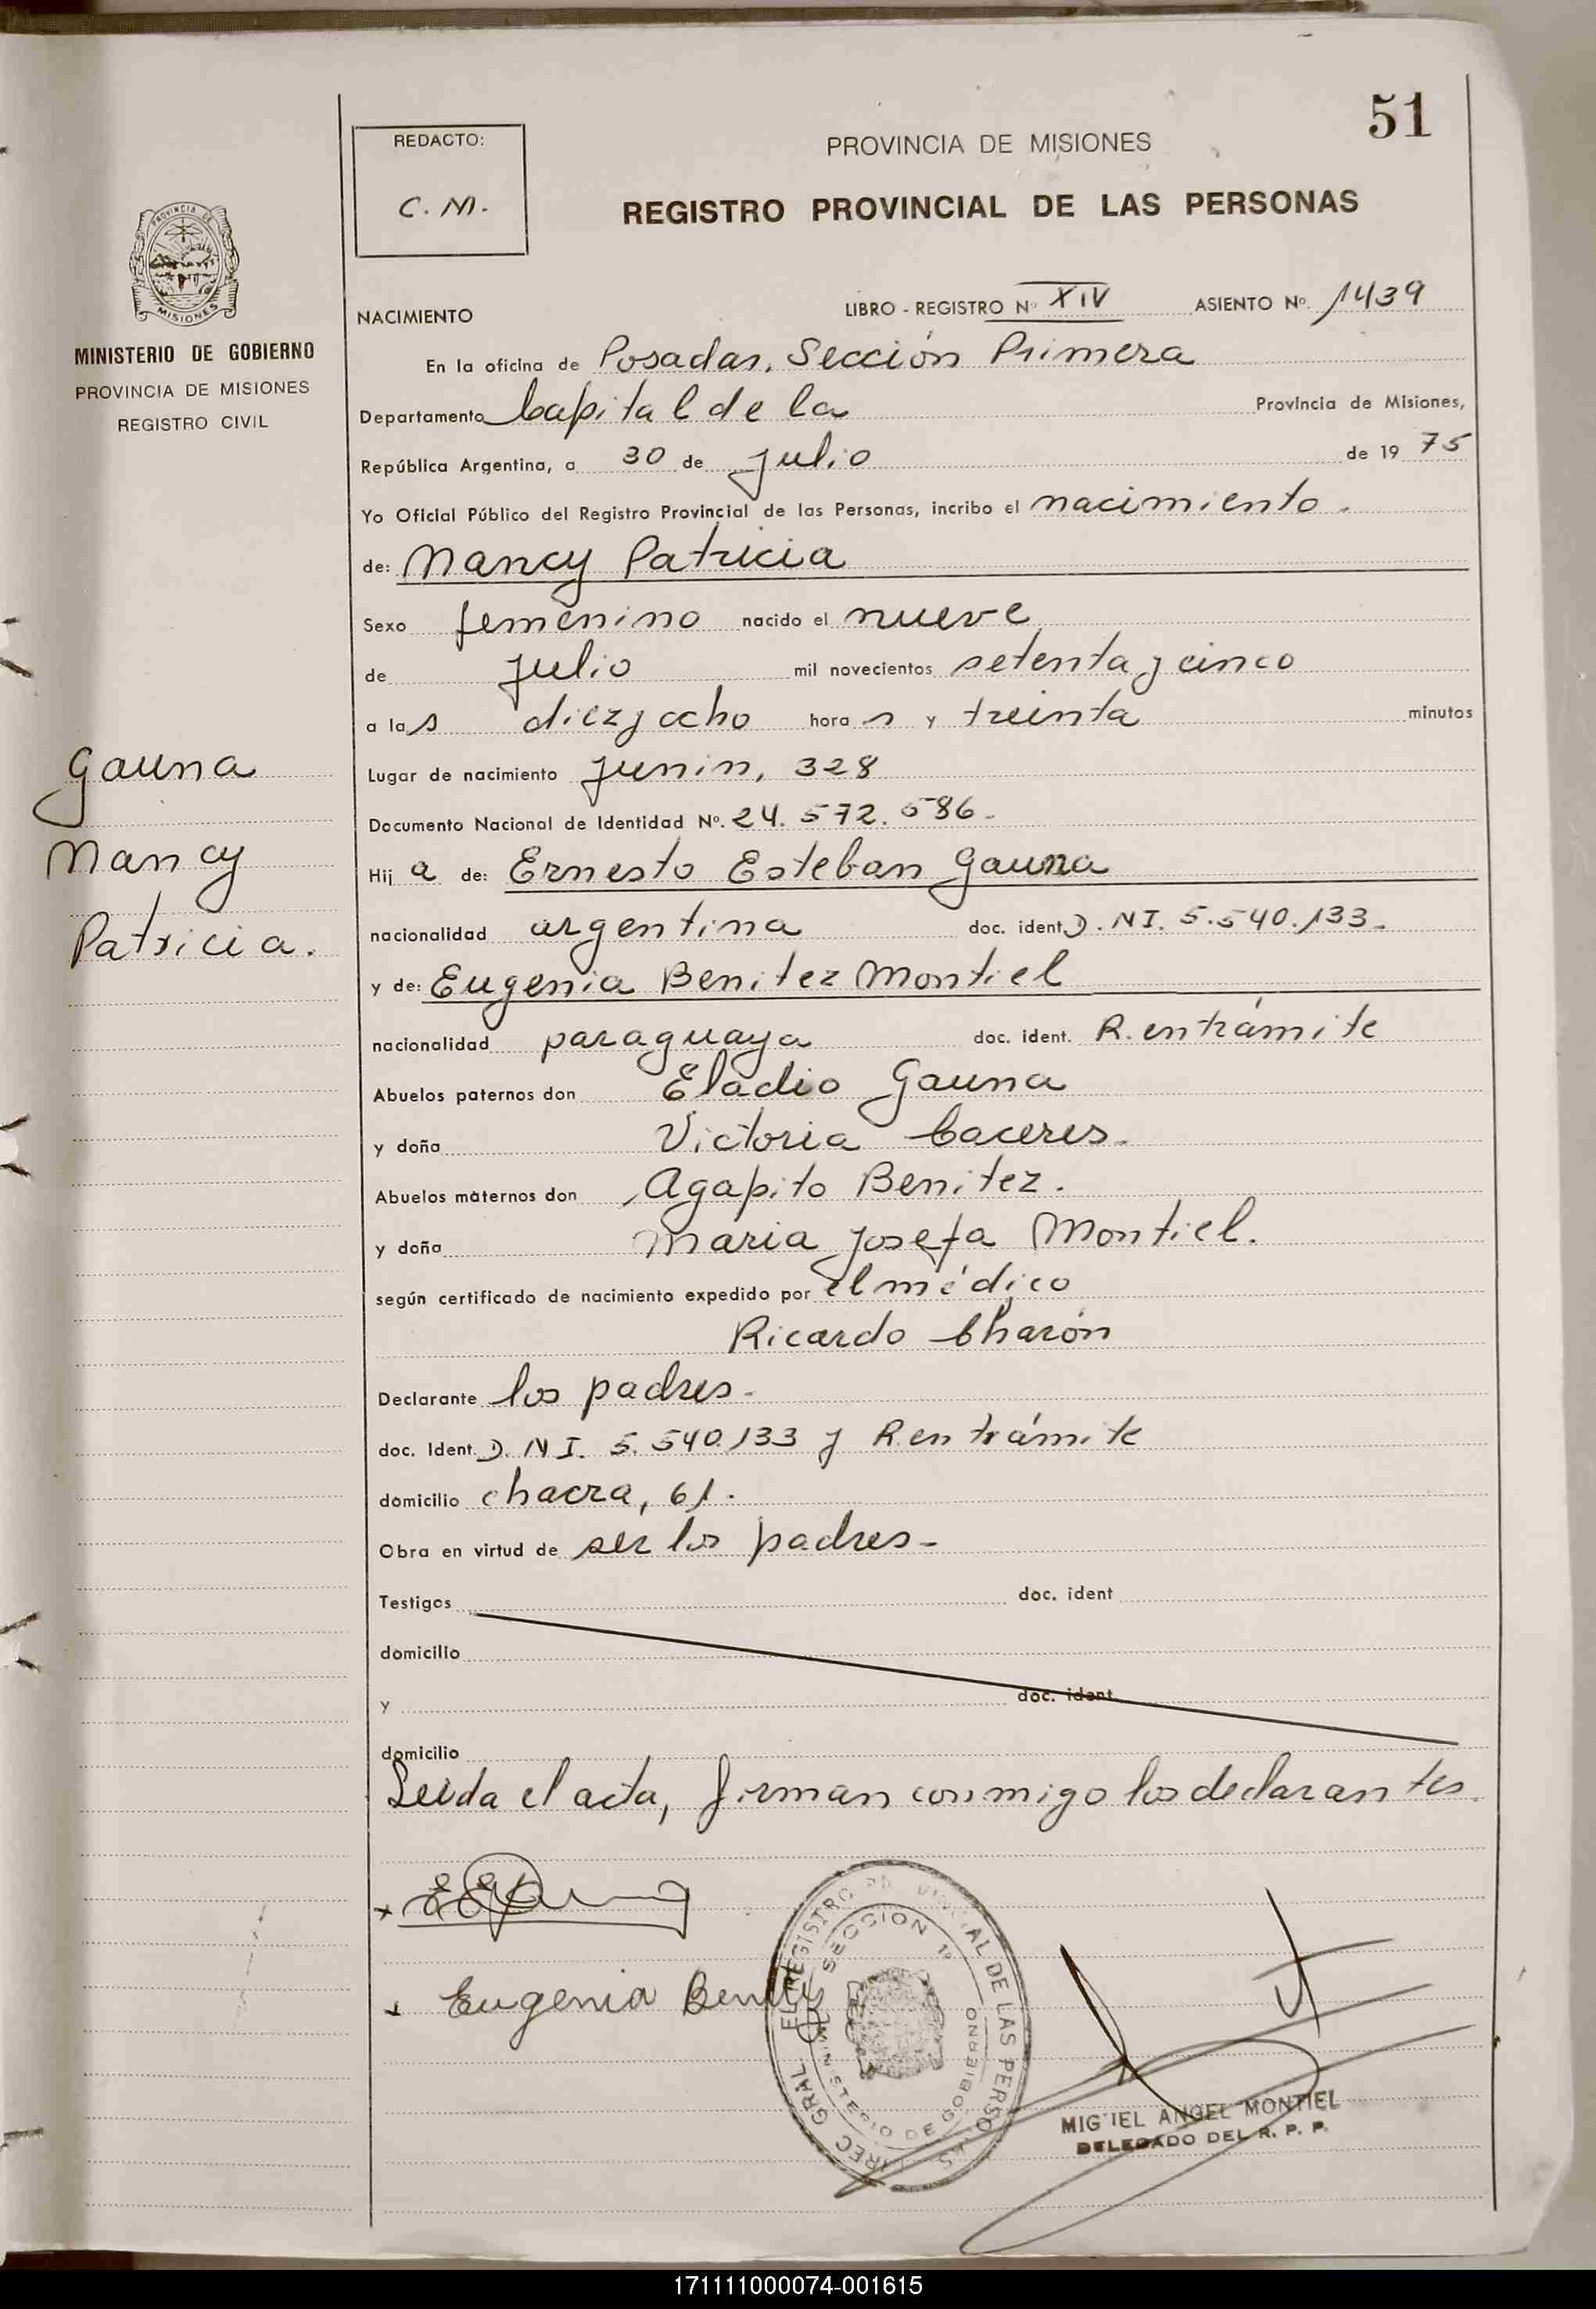 51
REDACTO:
C. M.
PROVINCIA DE MISIONES
REGISTRO PROVINCIAL DE LAS PERSONAS
PROVINCIA DE
MISIONES
MINISTERIO DE GOBIERNO
PROVINCIA DE MISIONES
REGISTRO CIVIL
NACIMIENTO LIBRO - REGISTRO Nº XIV ASIENTO Nº 1439
En la oficina de Posadas, Sección Primera
Departamento Capital de la Provincia de Misiones,
República Argentina, a 30 de julio de 19 75
Yo Oficial Público del Registro Provincial de las Personas, incribo el nacimiento.
de: Nancy Patricia
Sexo femenino nacido el nueve
de julio mil novecientos setenta y cinco
a las diez y ocho horas y treinta minutos
Lugar de nacimiento Junin, 328
Documento Nacional de Identidad Nº. 24.572.586.
Hija de: Ernesto Esteban Gauna
nacionalidad argentina doc. ident D.NI. 5.540.133.
y de: Eugenia Benitez Montiel
nacionalidad paraguaya doc. ident. R. en trámite
Abuelos paternos don Eladio Gauna
y doña Victoria Caceres.
Abuelos maternos don Agapito Benitez.
y doña Maria Josefa Montiel.
según certificado de nacimiento expedido por el médico
Ricardo Charón
Declarante los padres.
doc. Ident. D.NI. 5.540.133 y R. en trámite
domicilio chacra, 61.
Obra en virtud de ser los padres.
Testigos doc. ident
domicilio
y doc. ident
domicilio
Leída el acta, firman conmigo los declarantes.
Gauna
Nancy
Patricia.
Eugenia Benitez
REGISTRO PROVINCIAL DE LAS PERSONAS
SECCION 1ª
MINISTERIO DE GOBIERNO
MIGUEL ANGEL MONTIEL
DELEGADO DEL R. P. P.
171111000074-001615